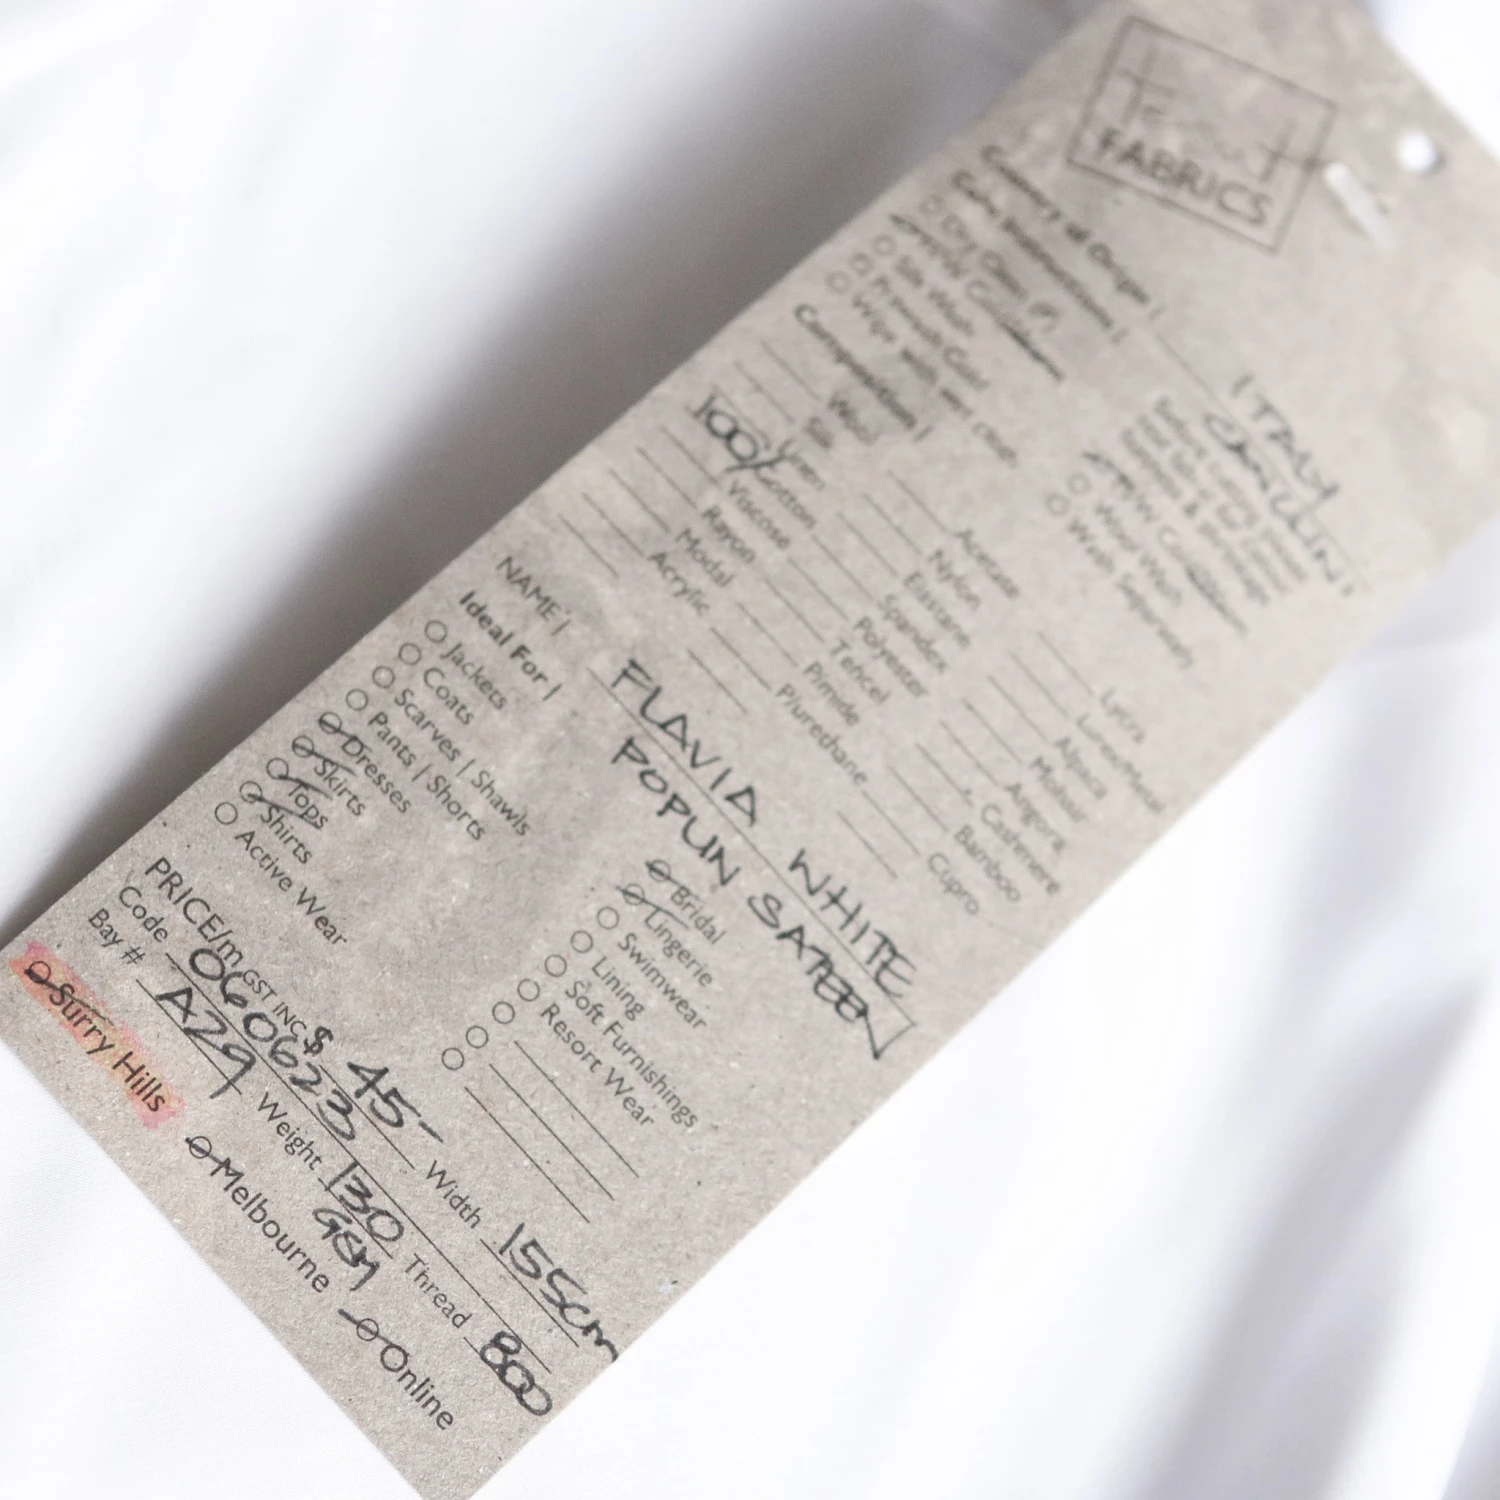 FABRICS
Country of Origin | ITALY
Care Instructions |
Dry Clean
Silk Wash
Composition |
Wool
Silk
100% Cotton
Viscose
Rayon
Modal
Acrylic
Acetate
Nylon
Elastane
Spandex
Polyester
Tencel
Pimide
P/urethane
Lycra
Lurex/Metal
Alpaca
Mohair
Angora
Cashmere
Bamboo
Cupro
Wool Wash
Wash Separately
NAME | FLAVIA WHITE
POPLIN SATEEN
Ideal For |
Jackets
Coats
Scarves | Shawls
Pants | Shorts
Dresses
Skirts
Tops
Shirts
Active Wear
Bridal
Lingerie
Swimwear
Lining
Soft Furnishings
Resort Wear
PRICE/m GST INC $ 45- Width 155cm
Code 060623 Weight 130 GSM Thread 800
Bay # A29
Surry Hills Melbourne Online